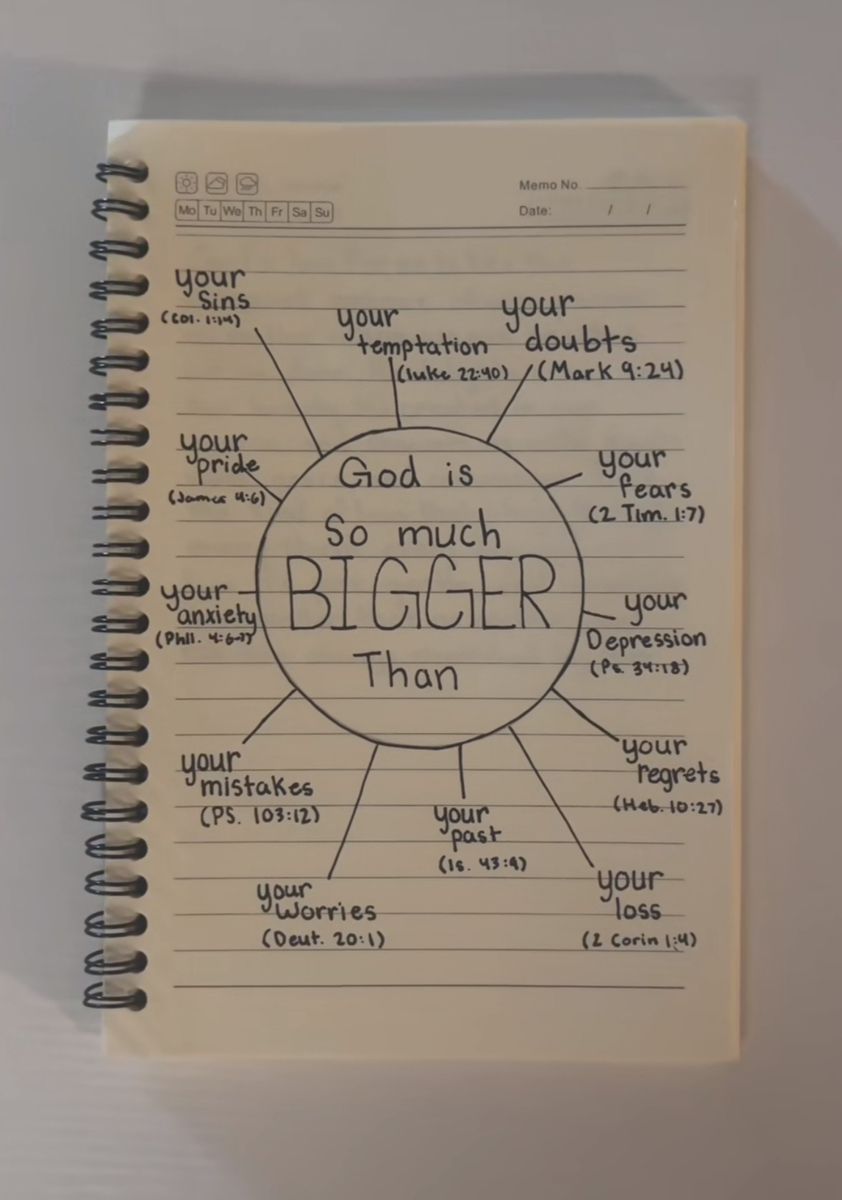 Memo No.
Mo Tu We Th Fr Sa Su
Date: / /
your
sins
(Col. 1:14)
your
temptation
(luke 22:40)
your
doubts
(Mark 9:24)
your
pride
(James 4:6)
your
fears
(2 Tim. 1:7)
God is
So much
BIGGER
Than
your
anxiety
(Phil. 4:6-7)
your
Depression
(Ps. 34:18)
your
mistakes
(PS. 103:12)
your
regrets
(Heb. 10:27)
your
past
(Is. 43:9)
your
worries
(Deut. 20:1)
your
loss
(2 Corin 1:4)